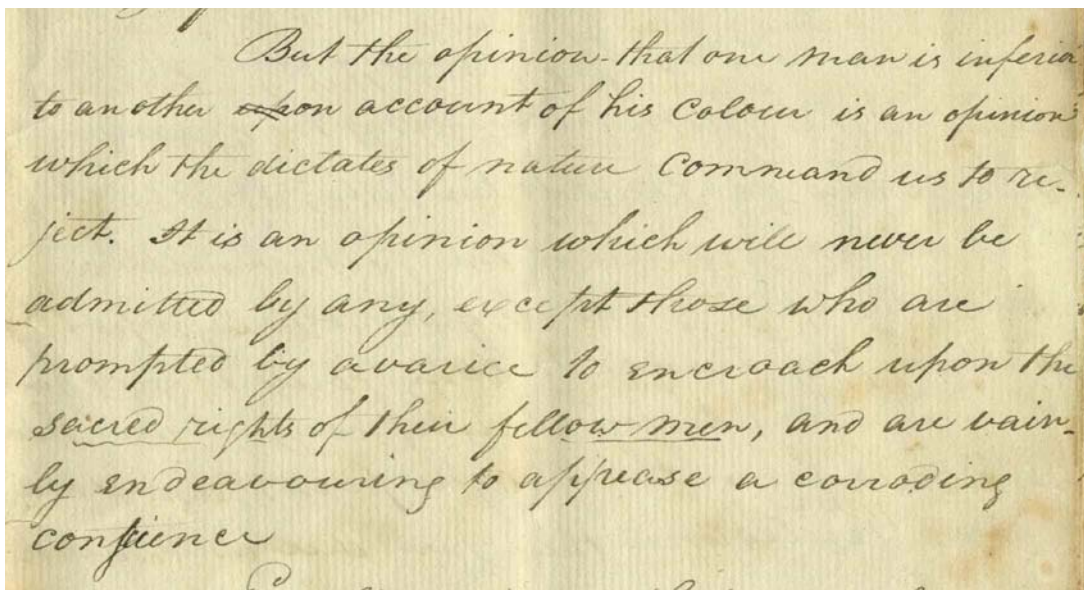 But the opinion that one man is inferior
to another upon account of his Colour is an opinion
which the dictates of nature Command us to re-
ject. It is an opinion which will never be
admitted by any, except those who are
prompted by avarice to encroach upon the
sacred rights of their fellow men, and are vain-
ly endeavouring to appease a corroding
consience